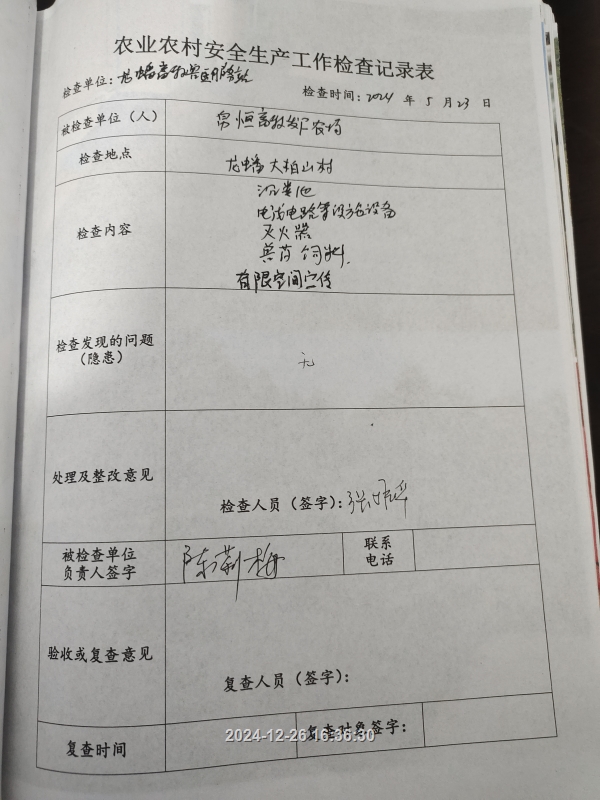 农业农村安全生产工作检查记录表
检查单位：龙蟠畜牧兽医服务站
检查时间：2024 年 5 月 23 日
被检查单位（人） 恒畜牧 农场
检查地点 龙蟠大柏山村
检查内容
沉粪池
电线电路等设施设备
灭火器
兽药 饲料
有限空间宣传
检查发现的问题
（隐患）
无
处理及整改意见
检查人员（签字）：张
被检查单位
负责人签字
陈莉梅
联系
电话
验收或复查意见
复查人员（签字）：
复查时间
复查对象签字：
2024-12-26 16:36:30